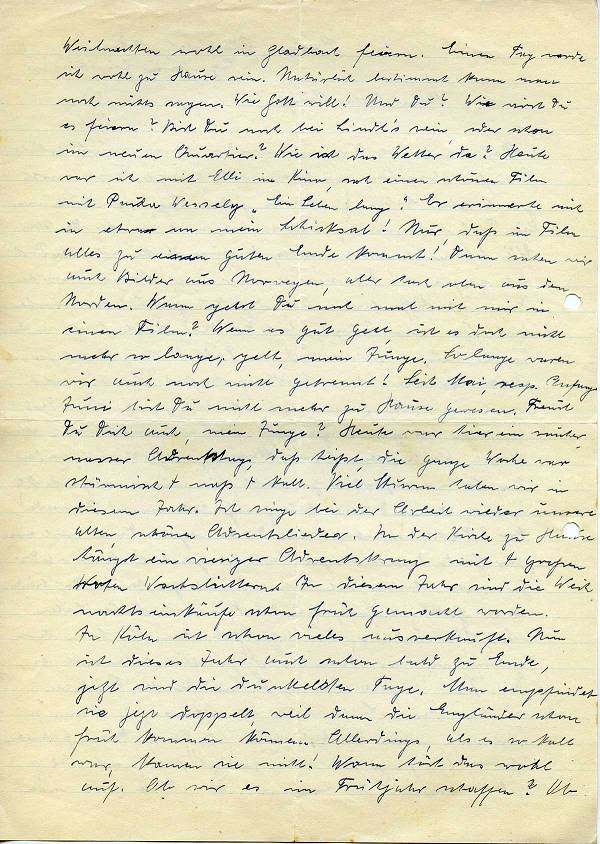 Weihnachten wohl in Gladbach feiern. Einen Tag werde
ich wohl zu Hause sein. Natürlich bestimmt kann man
noch nichts sagen. Wie Gott will! Und Du? Wie wirst Du
es feiern? Bist Du noch bei Lindt's sein, oder schon
im neuen Quartier? Wie ist das Wetter da? Heute
war ich mit Elli im Kino, sah einen schönen Film
mit Paula Wessely „Ein Leben lang". Er erinnerte mich
in etwas an mein Schicksal! Nur, daß im Film
alles zu einem guten Ende kommt! Dann sahen wir
auch Bilder aus Norwegen, aber hoch oben aus dem
Norden. Wann gehst Du noch mal mit mir in
einen Film? Wenn es gut geht, ist es doch nicht
mehr so lange, gell, mein Junge. So lange waren
wir auch noch nicht getrennt! Seit Mai, resp. Anfang
Juni bist Du nicht mehr zu Hause gewesen. Freust
Du Dich auch, mein Junge? Heute war hier ein
nasser Adventstag, das heißt, die ganze Woche war
stürmisch + naß + kalt. Viel Sturm haben wir in
diesem Jahr. Ich singe bei der Arbeit wieder unsere
alten, schönen Adventslieder. In der Kirche zu Hause
hängt ein riesiger Adventskranz mit 4 großen
roten Wachslichtern. In diesem Jahr sind die Weih
nachtseinkäufe schon früh gemacht worden.
In Köln ist schon vieles ausverkauft. Nun
ist dieses Jahr auch schon bald zu Ende,
jetzt sind die dunkelsten Tage. Man empfindet
sie jetzt doppelt, weil dann die Engländer schon
früh kommen können. Allerdings, als es so kalt
war, kamen sie nicht! Wann hört das wohl
auf. Ob wir es im Frühjahr schaffen? Ob